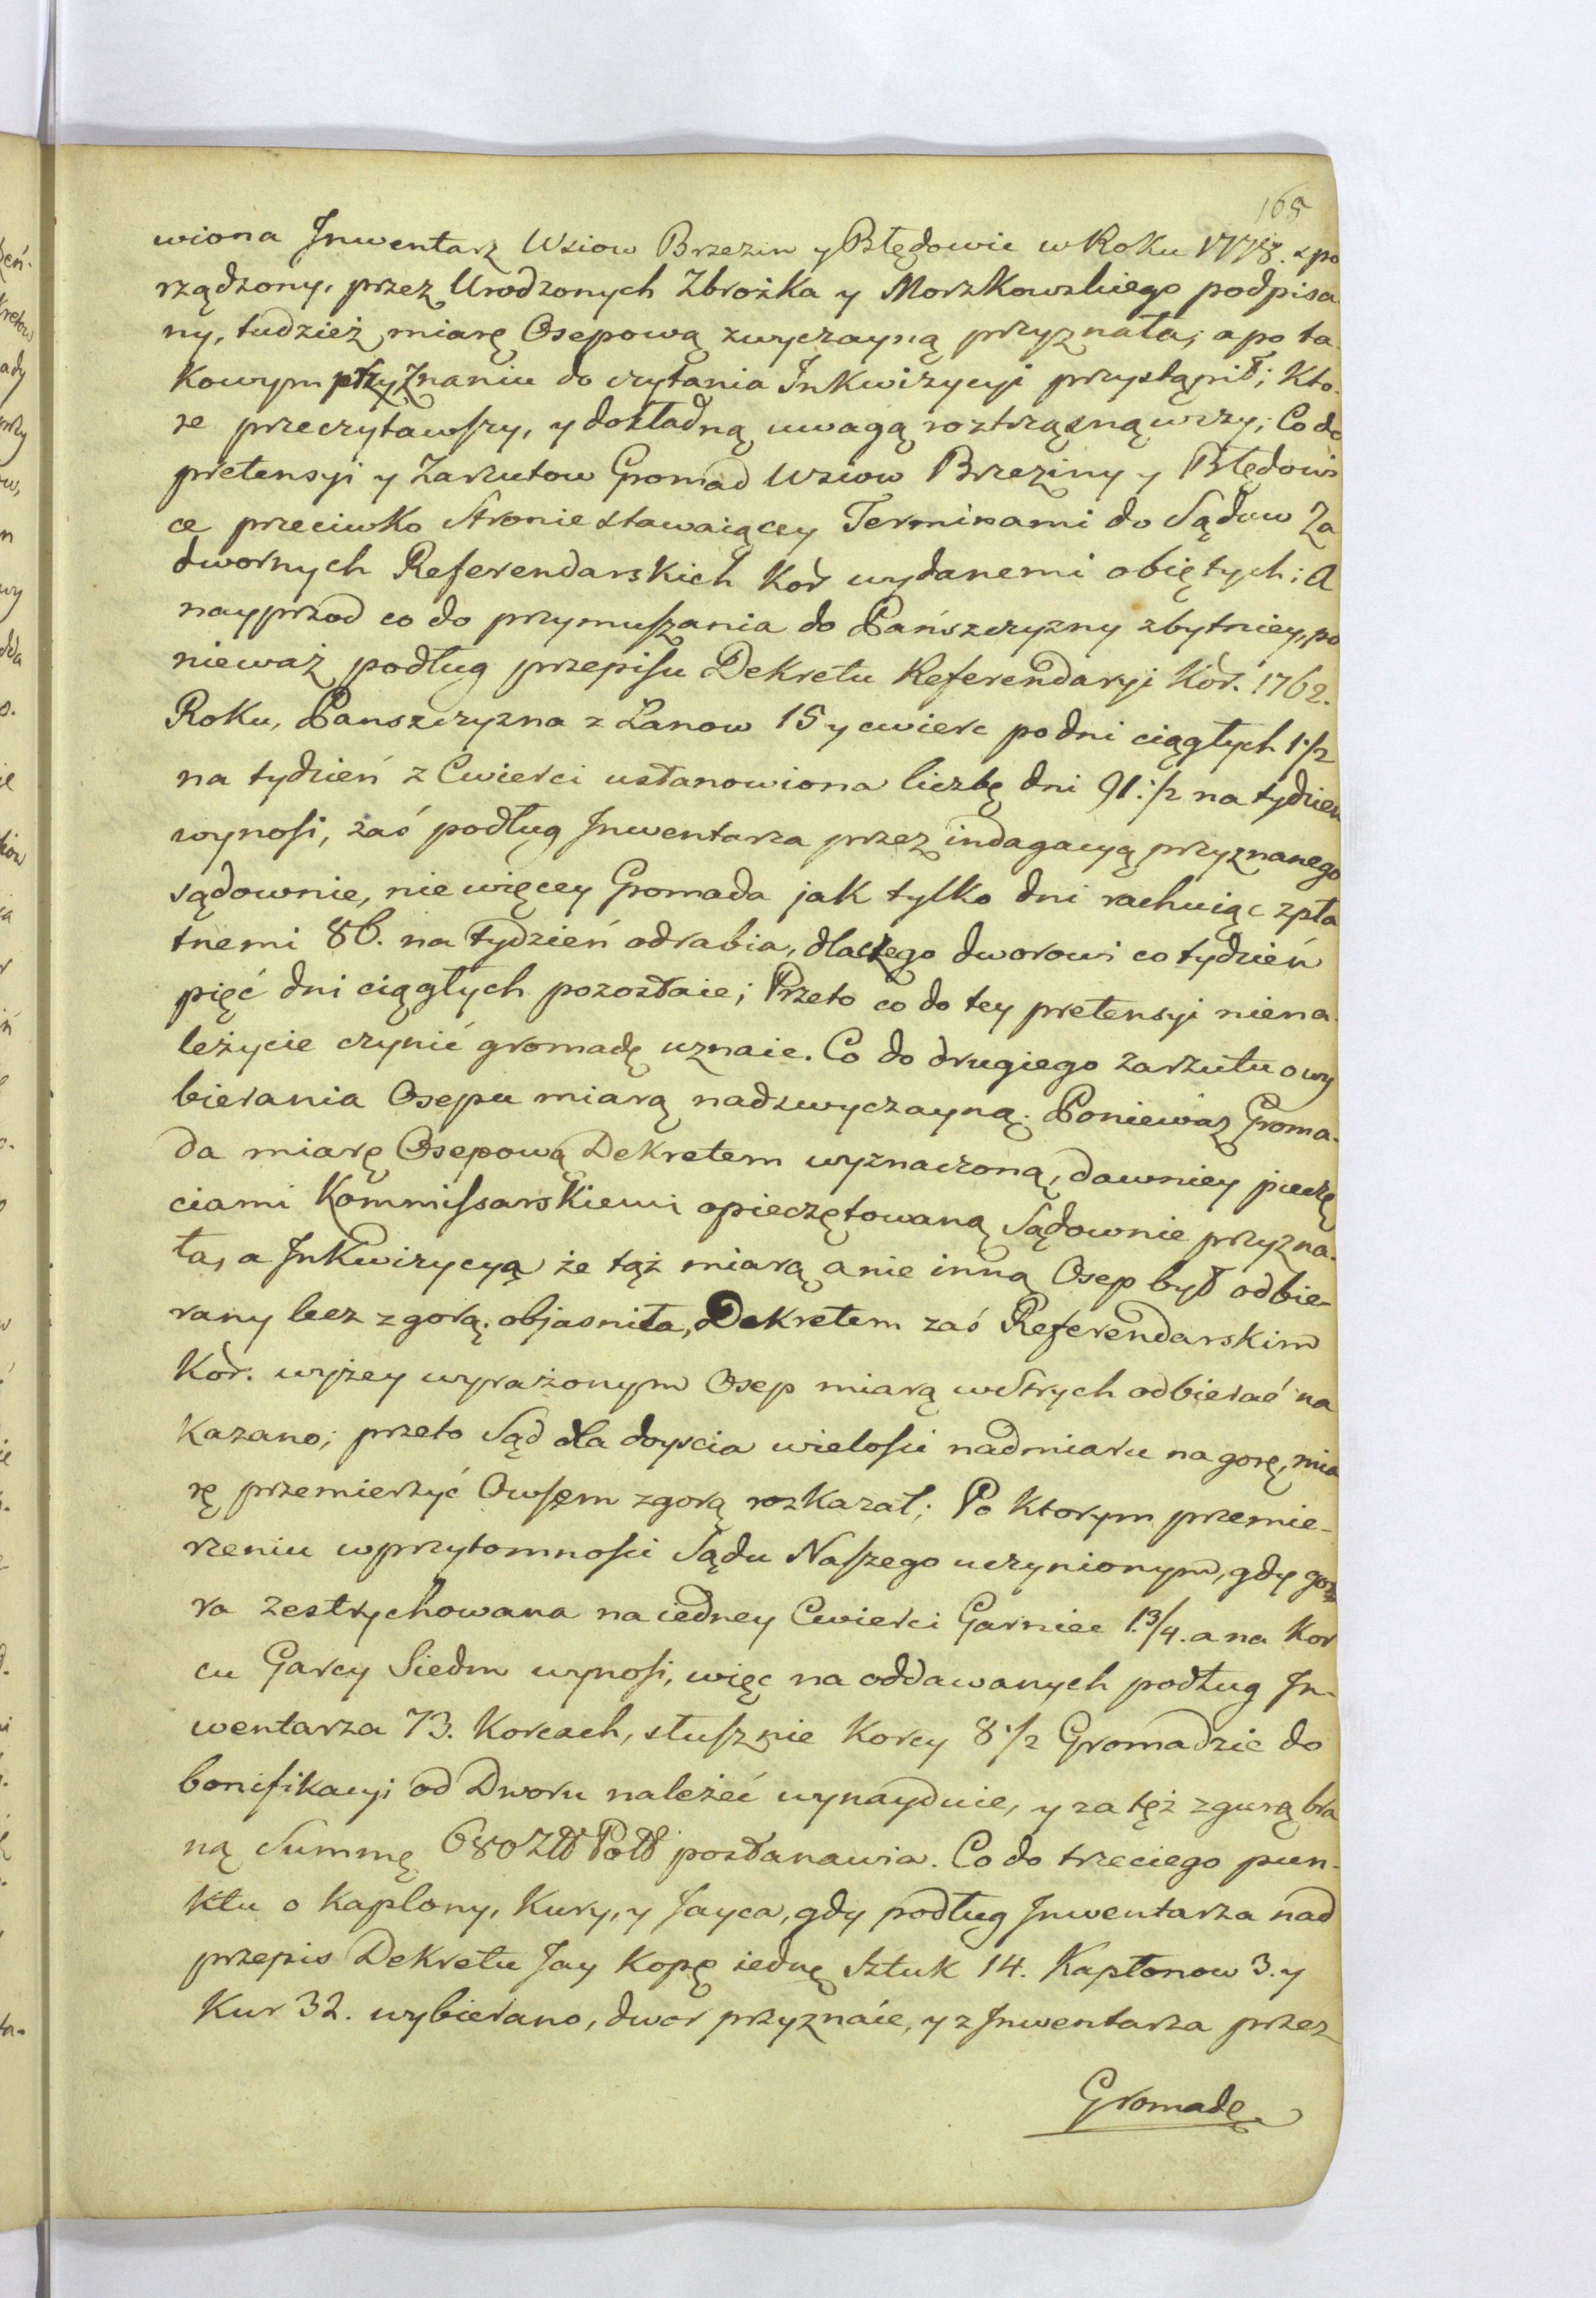 165
wiona Inwentarz Wsiow Brzezin y Błędowie w Roku 1778. spo
rządzony, przez Urodzonych Zbrożka y Morzkowskiego podpisa
ny, tudzież miarę Osepową zwyczayną przyznała; a po ta-
kowym przyznaniu do czytania Inkwizycyi przystąpił; Kto-
re przeczytawszy, y dokładną uwagą roztrząsnąwszy; Co do
pretensyi y Zarzutow Gromad Wsiow Brzeziny y Błędowi
ce przeciwko Stronie stawaiącey Terminami do Sądow Za
dwornych Referendarskich Kor wydanemi obiętych; A
nayprzod co do przymuszania do Pańszczyzny zbytniey, po
nieważ podług przepisu Dekretu Referendaryi Kor. 1762.
Roku, Panszczyzna z Lanow 15 y cwierc po dni ciągłych 1 1/2
na tydzień z Cwierci ustanowiona liczbę dni 91. 1/2 na tydzien
wynosi, zaś podług Inwentarza przez indagacyą przyznanego
sądownie, nie więcey Gromada jak tylko dni rachuiąc zpła
tnemi 86. na tydzień odrabia, dlaczego dworowi co tydzień
pięć dni ciągłych pozostaie; Przeto co do tey pretensyi niena-
leżycie czynić gromadę uznaie. Co do drugiego zarzutu o wy
bierania Osepu miarą nadzwyczayną. Ponieważ Groma-
da miarę Osepową Dekretem wyznaczoną, dawniey pieczę
ciami Kommissarskiemi opieczętowaną Sądownie przyzna-
ła, a Inkwizycyą że tąż miarą a nie inną Osep był odbie-
rany lecz z gorą, objasniła, Dekretem zaś Referendarskim
Kor. wyżey wyrażonym Osep miarą w Strych odbierać na
kazano; przeto Sąd dla doyscia wielości nadmiaru na gorę, mia
rę przemierzyć Owsem zgorą rozkazał; Po ktorym przemie-
rzeniu w przytomności Sądu Naszego uczynionym, gdy go
ra zestrychowana na iedney Cwierci Garniec 1. 3/4. a na Kor
cu Garcy Siedm wynosi, więc na oddawanych podług In-
wentarza 73. Korcach, słusznie Korcy 8 1/2 Gromadzie do
bonifikacyi od Dworu należeć wynayduie, y za tęż zgurą bra
ną Summę 680 Złł Poll postanawia. Co do trzeciego pun-
ktu o Kaplony, Kury, y Jayca, gdy podług Inwentarza nad
przepis Dekretu Jay Kopę iednę Sztuk 14. Kapłonow 3. y
Kur 32. wybierano, dwor przyznaie, y z Inwentarza przez
Gromadę